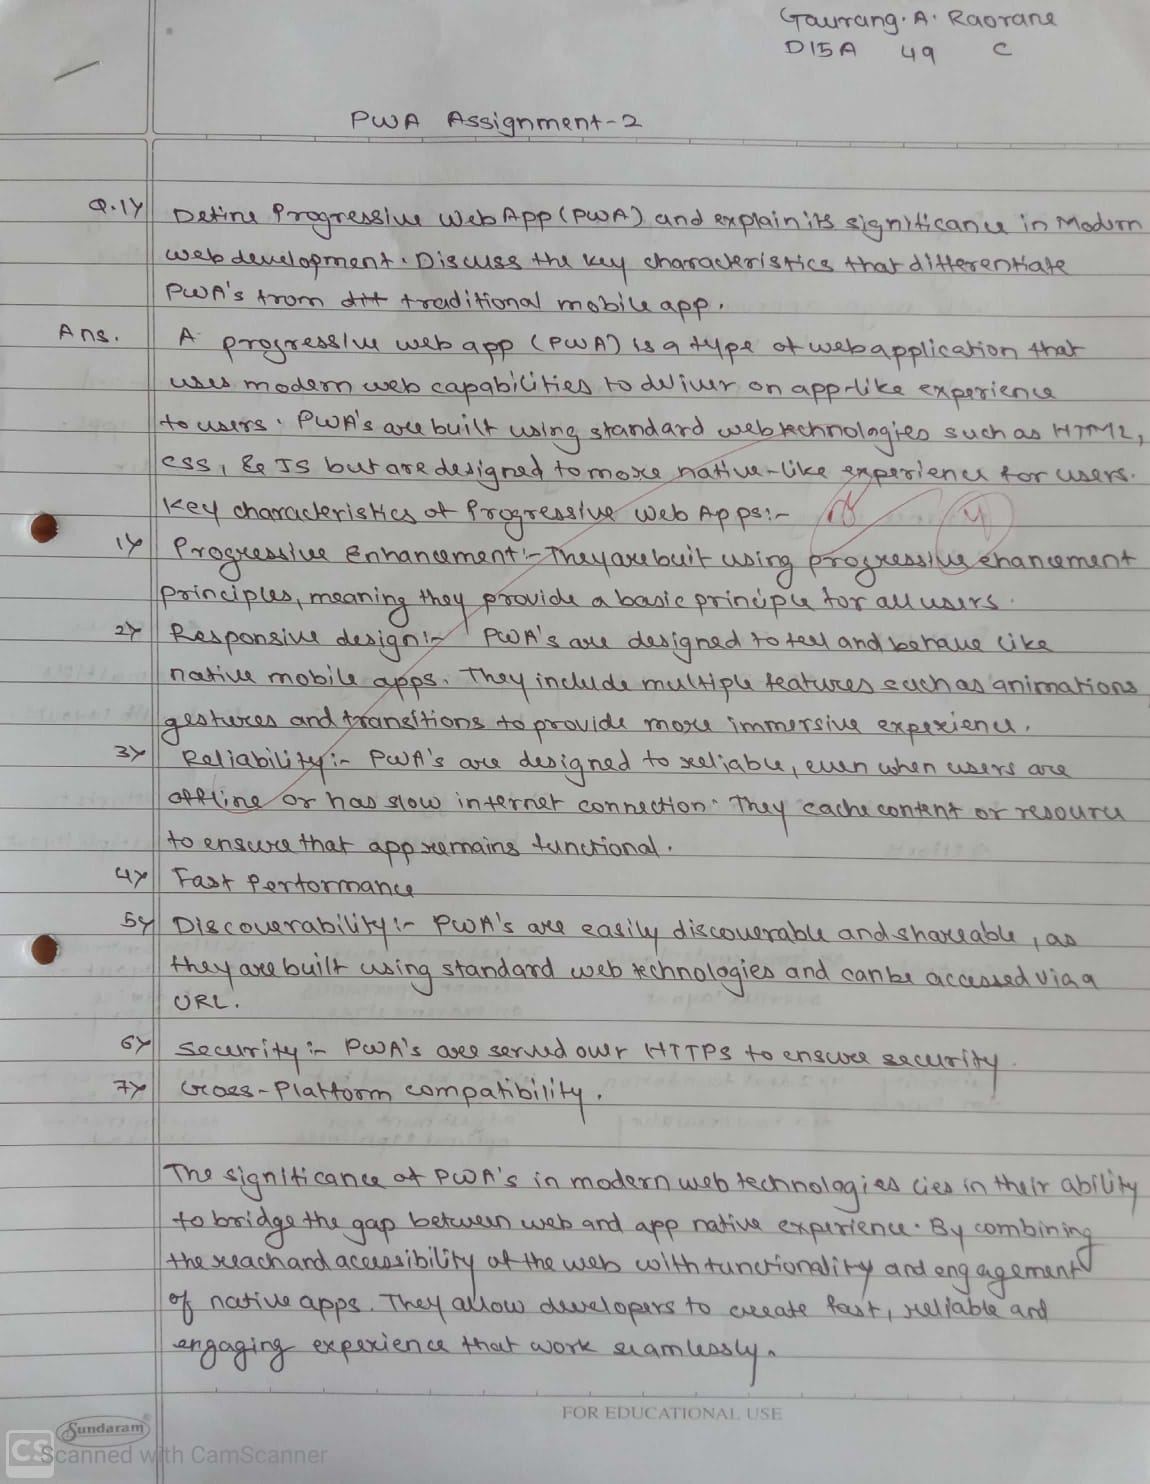 Gaurang. A. Raorane
D15A 49 C
PWA Assignment-2
Q.1) Define Progressive Web App (PWA) and explain its significance in Modern
web development. Discuss the key characteristics that differentiate
PWA's from dif traditional mobile app.
Ans. A progressive web app (PWA) is a type of web application that
uses modern web capabilities to deliver on app-like experience
to users. PWA's are built using standard web technologies such as HTML,
CSS, & JS but are designed to more native-like experience for users.
Key characteristics of Progressive Web Apps:-
1) Progressive Enhancement:- They are buit using progressive ehancement
principles, meaning they provide a basic principle for all users.
2) Responsive design:- PWA's are designed to feel and behave like
native mobile apps. They include multiple features such as animations
gestures and transitions to provide more immersive experience.
3) Reliability:- PWA's are designed to reliable, even when users are
offline or has slow internet connection. They cache content or resource
to ensure that app remains functional.
4) Fast Performance
5) Discoverability:- PWA's are easily discoverable and shareable, as
they are built using standard web technologies and can be accessed via a
URL.
6) Security:- PWA's are served over HTTPS to ensure security.
7) Cross-Platform compatibility.
The significance of PWA's in modern web technologies lies in their ability
to bridge the gap between web and app native experience. By combining
the reach and accessibility of the web with functionality and engagement
of native apps. They allow developers to create fast, reliable and
engaging experience that work seamlessly.
FOR EDUCATIONAL USE
Sundaram
CS Scanned with CamScanner